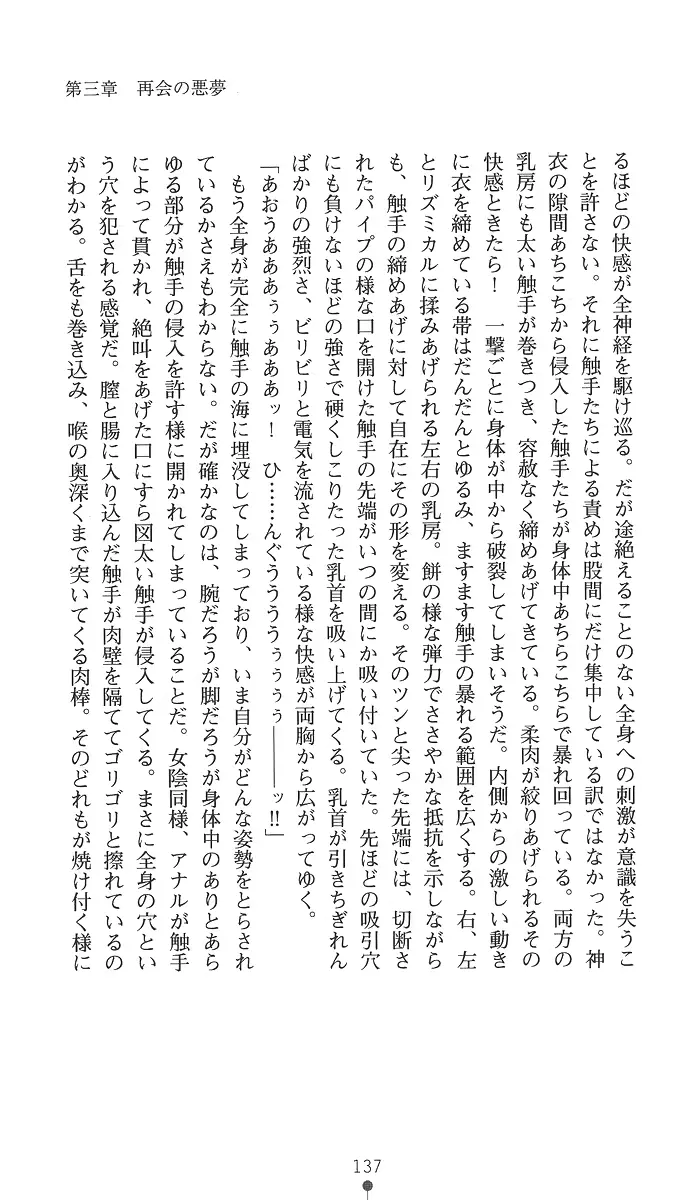 第三章　再会の悪夢
るほどの快感が全神経を駆け巡る。だが途絶えることのない全身への刺激が意識を失うこ
とを許さない。それに触手たちによる責めは股間にだけ集中している訳ではなかった。神
衣の隙間あちこちから侵入した触手たちが身体中あちらこちらで暴れ回っている。両方の
乳房にも太い触手が巻きつき、容赦なく締めあげてきている。柔肉が絞りあげられるその
快感ときたら！　一撃ごとに身体が中から破裂してしまいそうだ。内側からの激しい動き
に衣を締めている帯はだんだんとゆるみ、ますます触手の暴れる範囲を広くする。右、左
とリズミカルに揉みあげられる左右の乳房。餅の様な弾力でささやかな抵抗を示しながら
も、触手の締めあげに対して自在にその形を変える。そのツンと尖った先端には、切断さ
れたパイプの様な口を開けた触手の先端がいつの間にか吸い付いていた。先ほどの吸引穴
にも負けないほどの強さで硬くしこりたった乳首を吸い上げてくる。乳首が引きちぎれん
ばかりの強烈さ、ビリビリと電気を流されている様な快感が両胸から広がってゆく。
「あおうあああぅぅあああッ！　ひ……んぐうううぅぅぅぅ――ッ!!」
　もう全身が完全に触手の海に埋没してしまっており、いま自分がどんな姿勢をとらされ
ているかさえもわからない。だが確かなのは、腕だろうが脚だろうが身体中のありとあら
ゆる部分が触手の侵入を許す様に開かれてしまっていることだ。女陰同様、アナルが触手
によって貫かれ、絶叫をあげた口にすら図太い触手が侵入してくる。まさに全身の穴とい
う穴を犯される感覚だ。膣と腸に入り込んだ触手が肉壁を隔ててゴリゴリと擦れているの
がわかる。舌をも巻き込み、喉の奥深くまで突いてくる肉棒。そのどれもが焼け付く様に
137